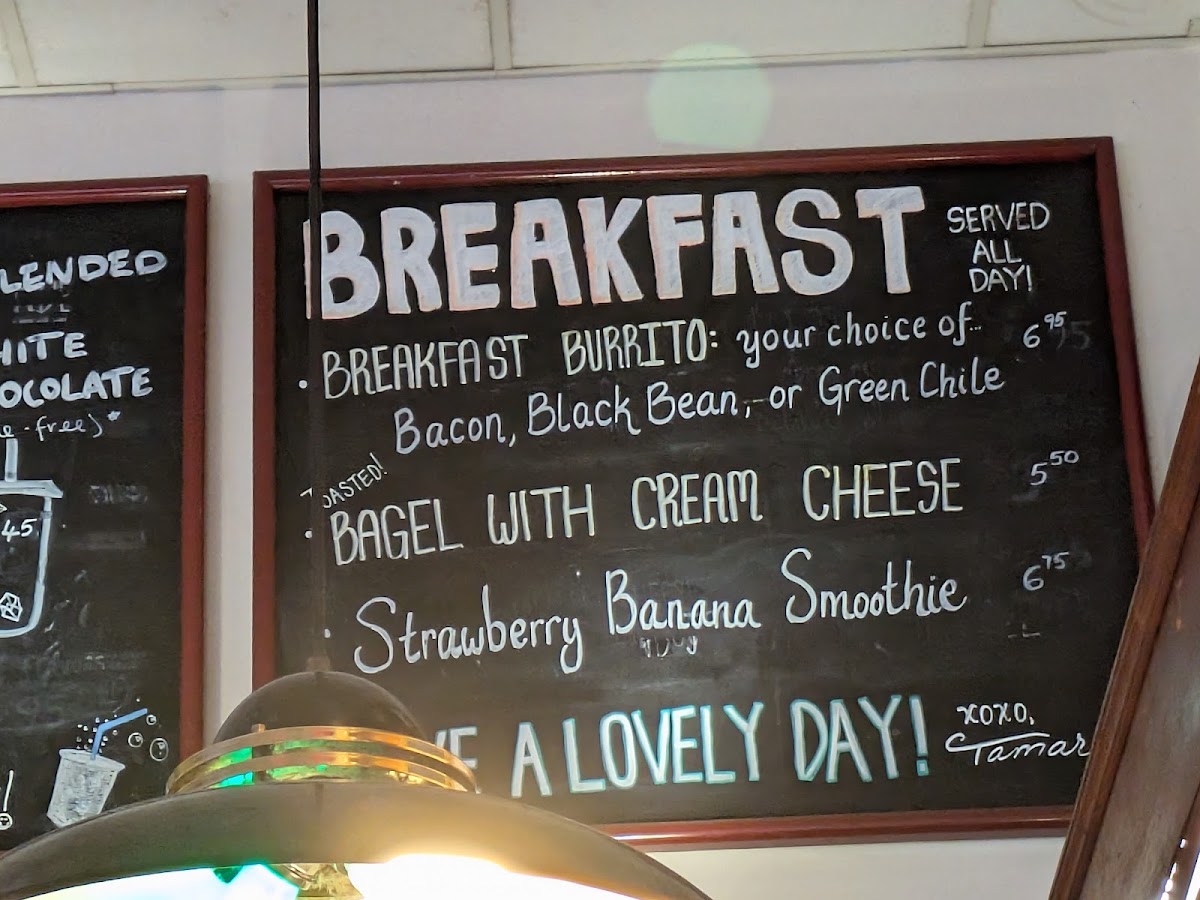 BREAKFAST
SERVED
ALL
DAY!
• BREAKFAST BURRITO: your choice of... 6 95
Bacon, Black Bean, or Green Chile
TOASTED!
• BAGEL WITH CREAM CHEESE 5 50
• Strawberry Banana Smoothie 6 75
A LOVELY DAY!
xoxo,
Tamar
LENDED
HITE
OCOLATE
e-free)*
45